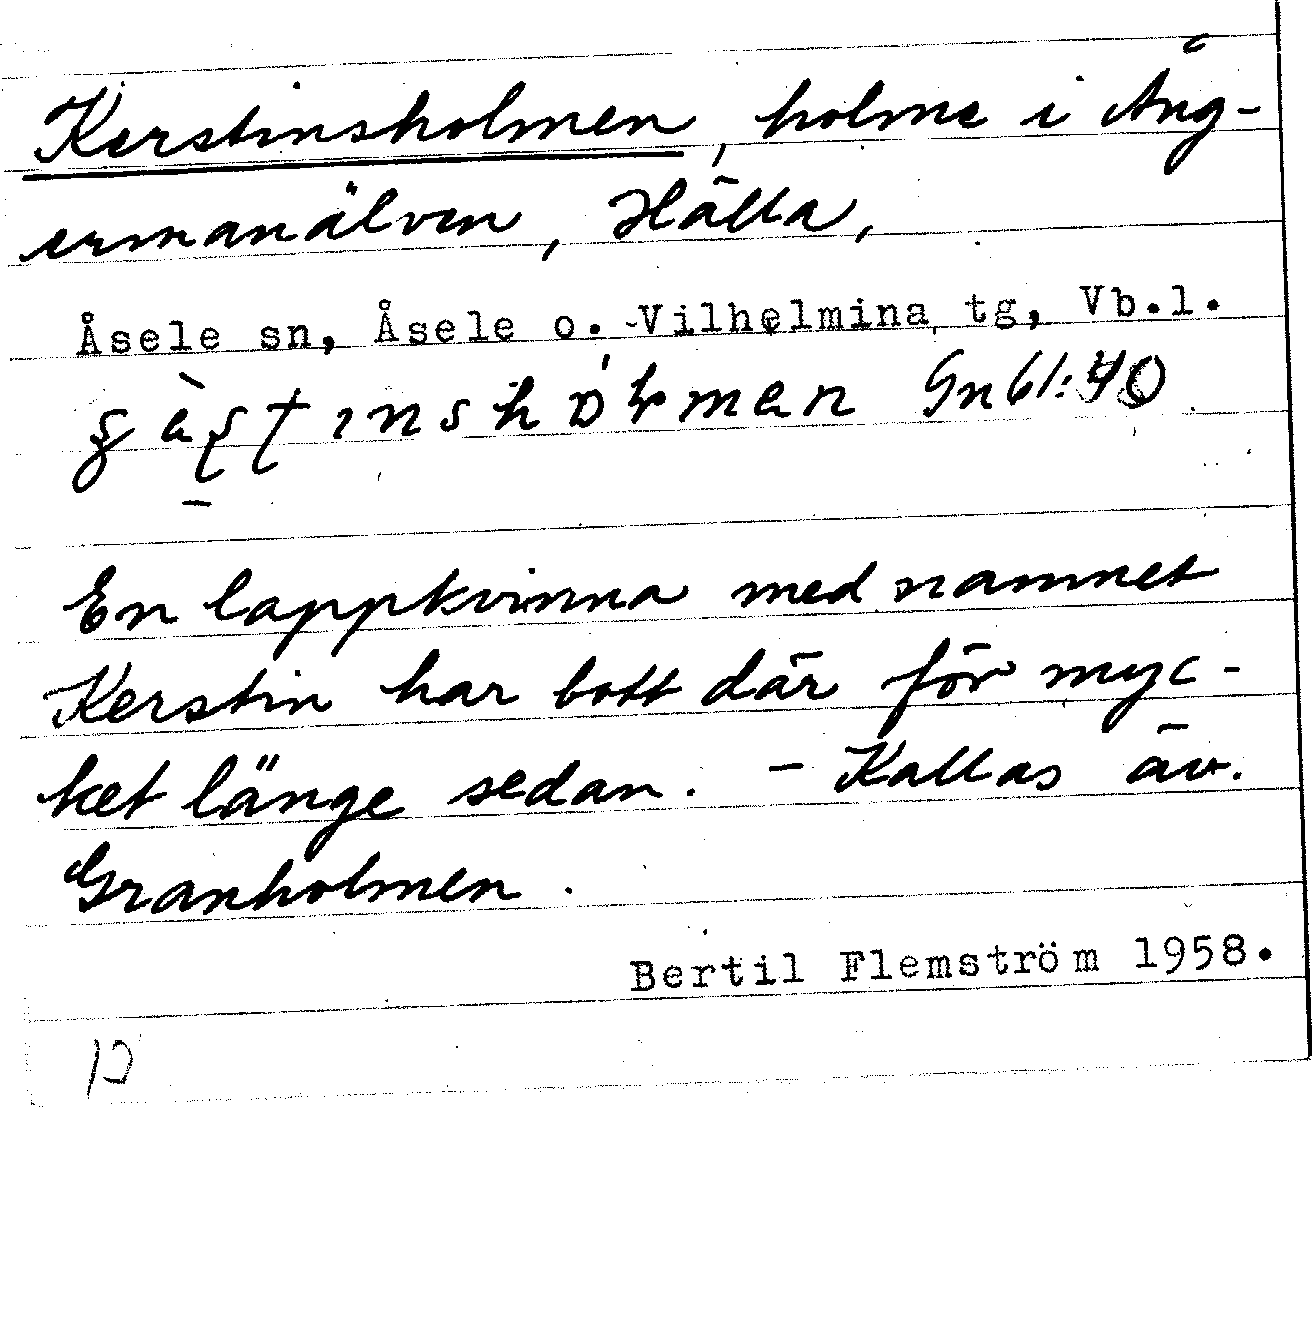 Kerstinsholmen, holme i Ång-
ermanälven, Hälla,
Åsele sn, Åsele o. Vilhelmina tg, Vb.l.
Gn 61:40
En lappkvinna med namnet
Kerstin har bott där för myc-
ket länge sedan. - Kallas äv.
Granholmen.
Bertil Flemström 1958.